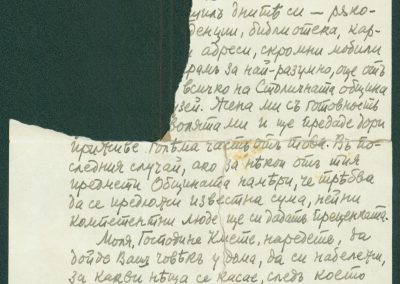 дните си – ръко-
денции, библиотека, кар-
и адреси, скромни мобили
рамъ за най-разумно, още отъ
всичко на Столичната община
зей. Жена ми съ готовность
волята ми и ще предаде дори
приживе голѣма часть отъ това. Въ по-
следния случай, ако за нѣкои отъ тия
предмети Общината намѣри, че трѣбва
да се предложи известна сума, нейни
компетентни люде ще си дадатъ преценката.
Моля, Господине Кмете, наредете, да
дойде Вашъ човѣкъ у дома, да си набележи,
за какви нѣща се касае, следъ което